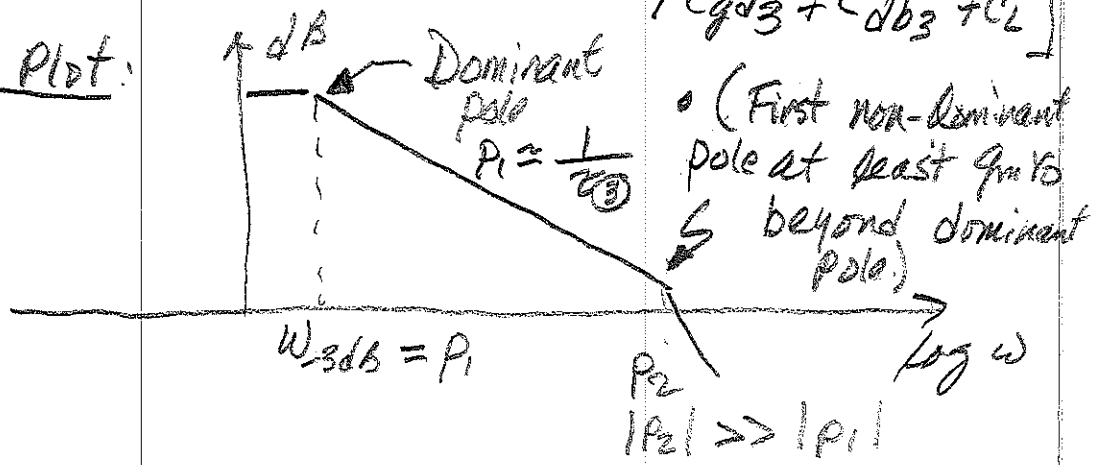 Cgd3 + Cdb3 + CL ]
Plot:
dB
Dominant
pole
P1 ≈ 1/τ③
• (First non-dominant
pole at least gmro
beyond dominant
pole.)
W-3dB = P1
log ω
P2
|P2| >> |P1|